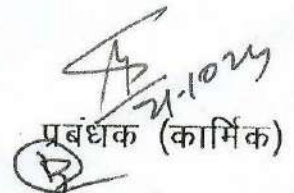 21.10.24
प्रबंधक (कार्मिक)